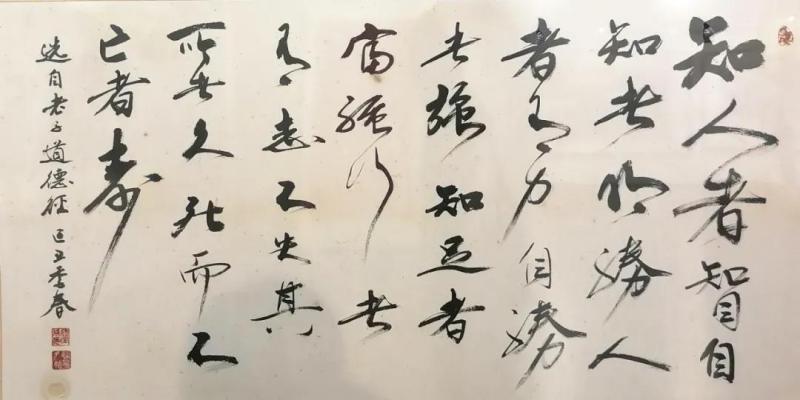 知人者智自
知者明勝人
者有力自勝
者強知足者
富強行者
有志不失其
所者久死而不
亡者壽
选自老子道德经己丑季春